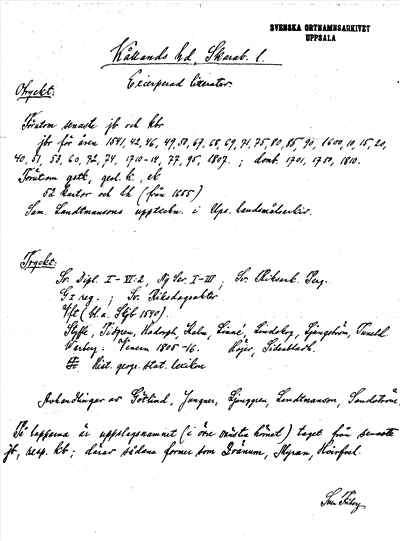 SVENSKA ORTNAMNSARKIVET
UPPSALA
Kållands hd, Skarab. l.
Excerperad litteratur.
Otryckt:
Förutom senaste jb och kbr
jbr för åren 1541, 42, 46, 49, 50, 67, 68, 69, 71, 75, 80, 85, 90, 1600, 10, 15, 20,
40, 51, 53, 60, 72, 74, 1710-14, 77, 95, 1807. ; domb. 1701, 1750, 1810.
Förutom gstk, geol. k., ek
52 kartor och lh (från 1655)
Sam. Landtmansons uppteckn. i Ups. landsmålsarkiv.
Tryckt:
Sv. Dipl. I-VI:2, Ny Ser. I-III ; Sv. Riksark. Perg.
G I reg. ; Sv. Riksdagsakter
Vft (bl. a. Stgb 1540).
Styffe, Tidgren, Hadorph, Kalm, Linné, Lindskog, Ljungström, Tuneld
Warberg: Vänern 1805-16. Höjer, Sidenbladh.
Hist. geogr. stat. lexikon
Avhandlingar av Götlind, Jungner, Ljunggren, Landtmanson, Sandström.
På lapparna är uppslagsnamnet (i övre vänstra hörnet) taget från senaste
jb, resp. kb; därav sådana former som Dränum, Myran, Höverful.